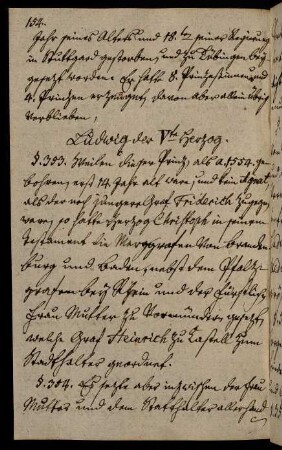 134.
Jahr seines Alters und 18.ten seiner Regierung
in Stuttgard gestorben, und zu Tübingen bey-
gesetzt worden. Er hatte 8. Prinzessinnen und
4. Prinzen erzeuget, davon aber allein übrig
verblieben,
Ludwig der Vte Herzog.
§. 303. Weilen dieser Prinz, als a. 1554. ge-
bohren, erst 14. Jahr alt ware, und kein Agnat,
als der noch jüngere Graf Friderich zugegen
ware, so hatte Herzog Christoph in seinem
Testament die Marggrafen von Branden-
burg und Baden, nebst dem Pfaltz-
grafen bey Rhein und der Fürstlichen
Frau Mutter zu Vormünder gesetzt,
welche Graf Heinrich zu Castell zum
Statthalter geordnet.
§. 304. Es setzte aber inzwischen der Frau
Mutter und dem Statthalter allerhand